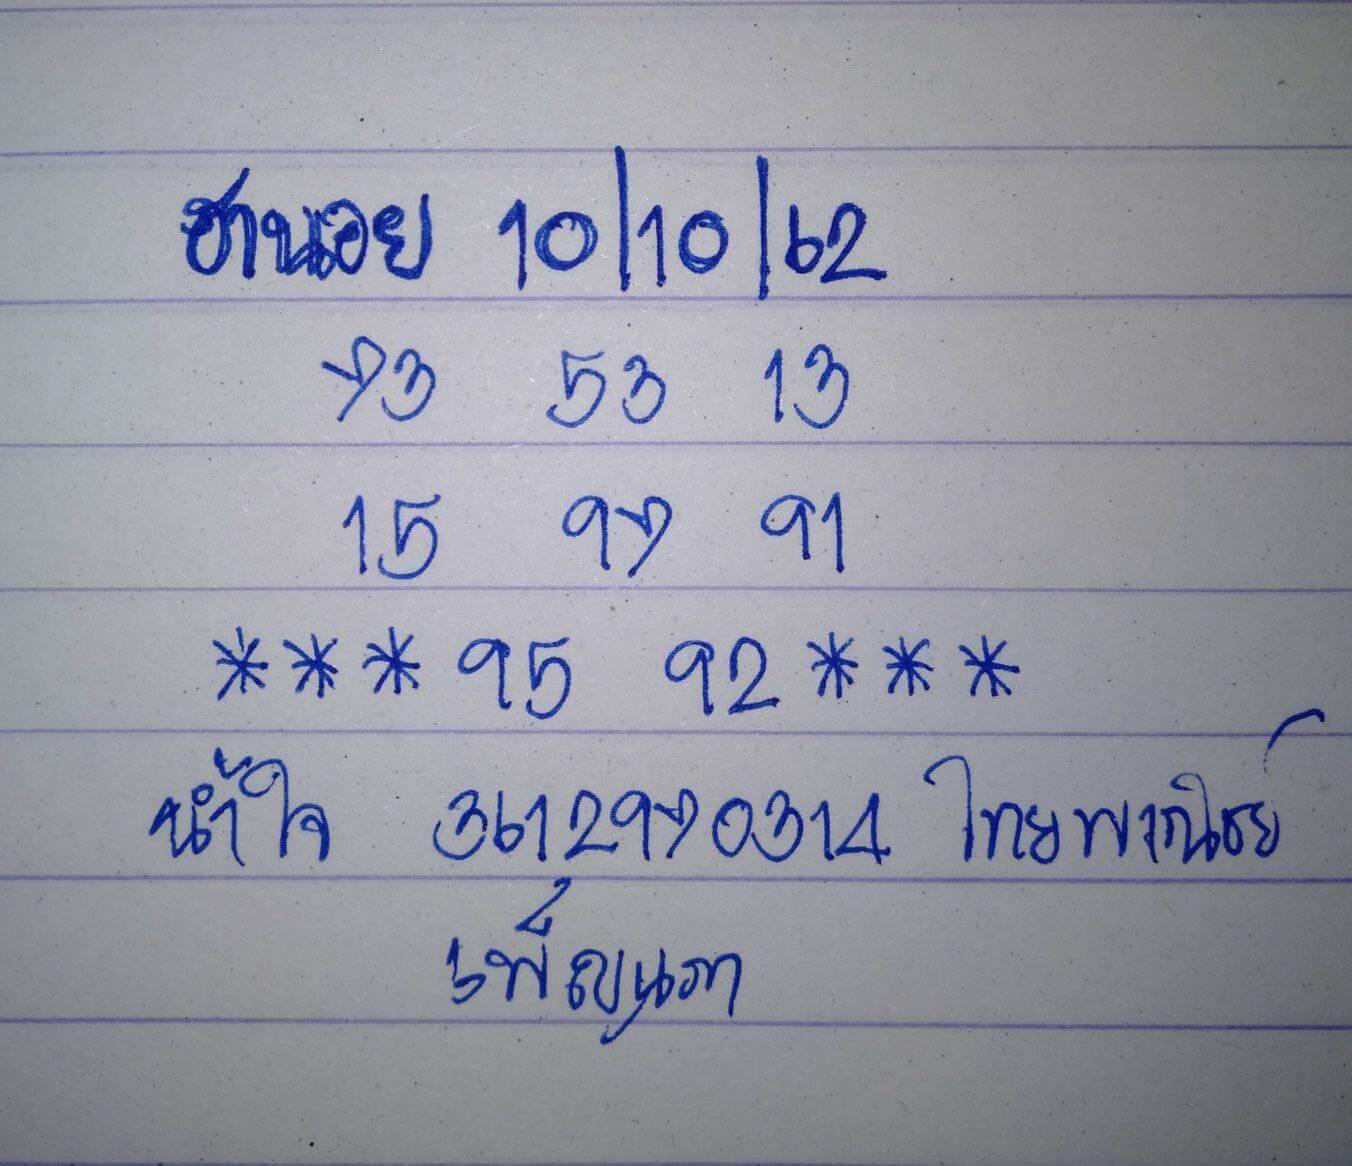 ฮานอย 10/10/62
73 53 13
15 97 91
*** 95 92 ***
น้ำใจ 3612970314 ไทยพาณิชย์
เพ็ญนภา